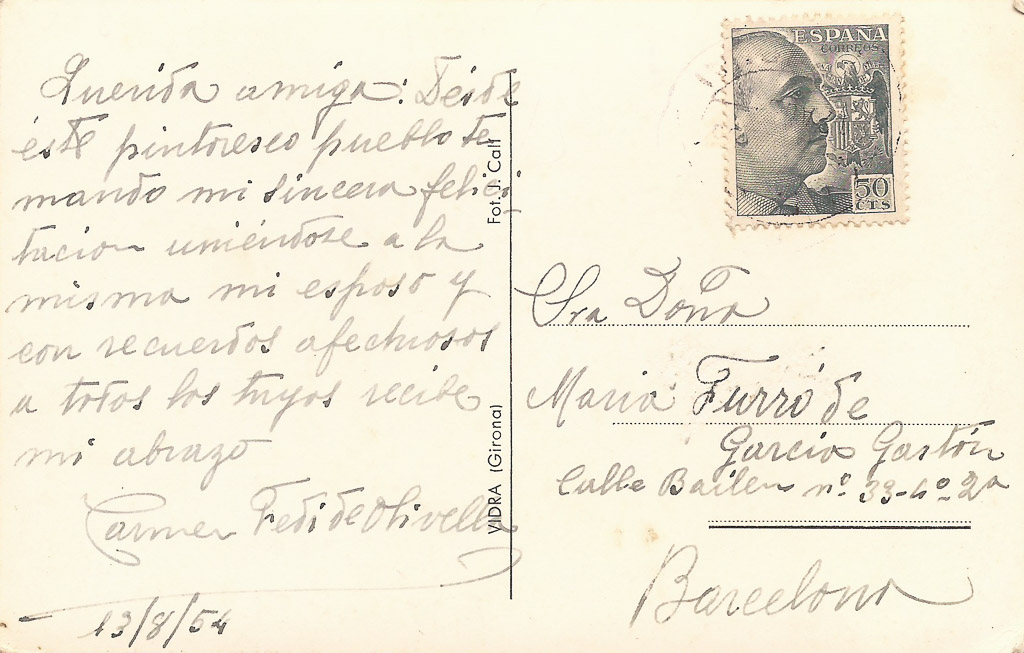 Querida amiga: Desde
este pintoresco pueblo te
mando mi sincera felici
tacion uniéndose a la
misma mi esposo y
con recuerdos afectuosos
a todos los tuyos recibe
mi abrazo
Carmen Fedi de Olivella
13/8/54
VIDRA (Girona) Fot. J. Call
ESPAÑA
CORREOS
50
CTS
Sra Doña
Maria Furró de
Garcia Gastón
Calle Bailen nº 33-4º 2ª
Barcelona